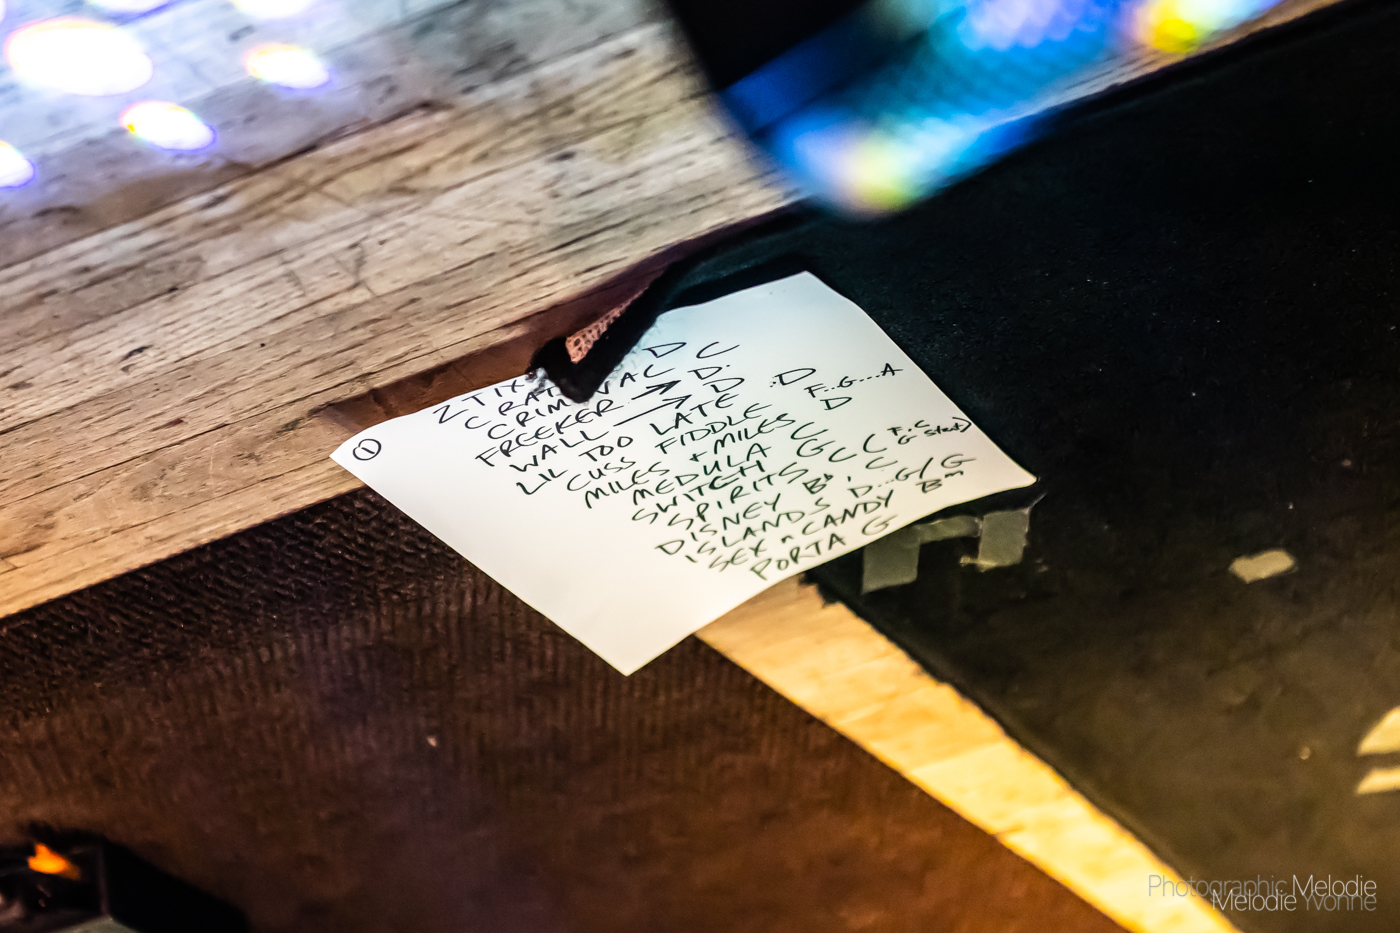 ①
Z TIX D C
C RAT VAC D.
CRIM D
FREEKER → D
WALL →
LIL TOO LATE .D
CUSS FIDDLE F..G...A
MILES + MILES D
MEDULA C
SWITCH G
SSPIRITS C C F.C G start)
DISNEY Bb, C
ISLANDS D...G/G
SEX n CANDY Bm
PORTA G
Photographic Melodie
Melodie Yvonne